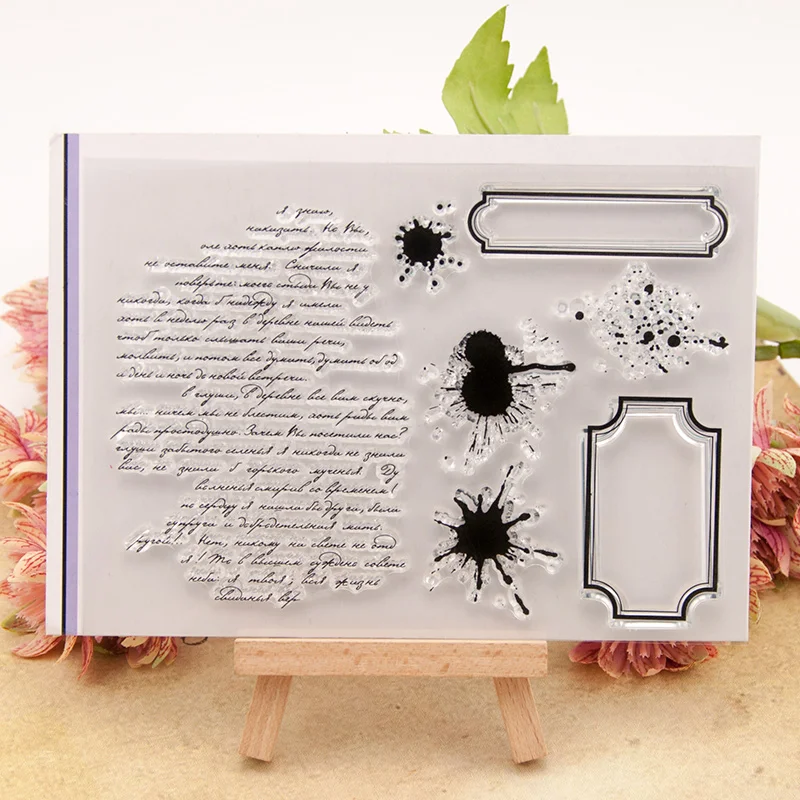 я знаю,
наказать. Но Вы,
оле хоть каплю жалости
не оставите меня. Сначала я
поверьте: моего стыда Вы не у
никогда, когда б надежду я имела
хоть в неделю раз в деревне нашей видеть
чтоб только слышать ваши речи,
молвить, и потом все думать, думать об од
и день и ночь до новой встречи.
в глуши, в деревне все вам скучно,
мы... ничем мы не блестим, хоть рады вам
рады простодушно. Зачем Вы посетили нас?
глуши забытого селенья я никогда не знала
вас, не знала б горького мученья. Ду
волненья смирив со временем!
по сердцу я нашла бы друга, была
супруга и добродетельная мать.
ругой!.. Нет, никому на свете не отд
я! То в вышнем суждено совете
неба: я твоя; вся жизнь
свиданья вер